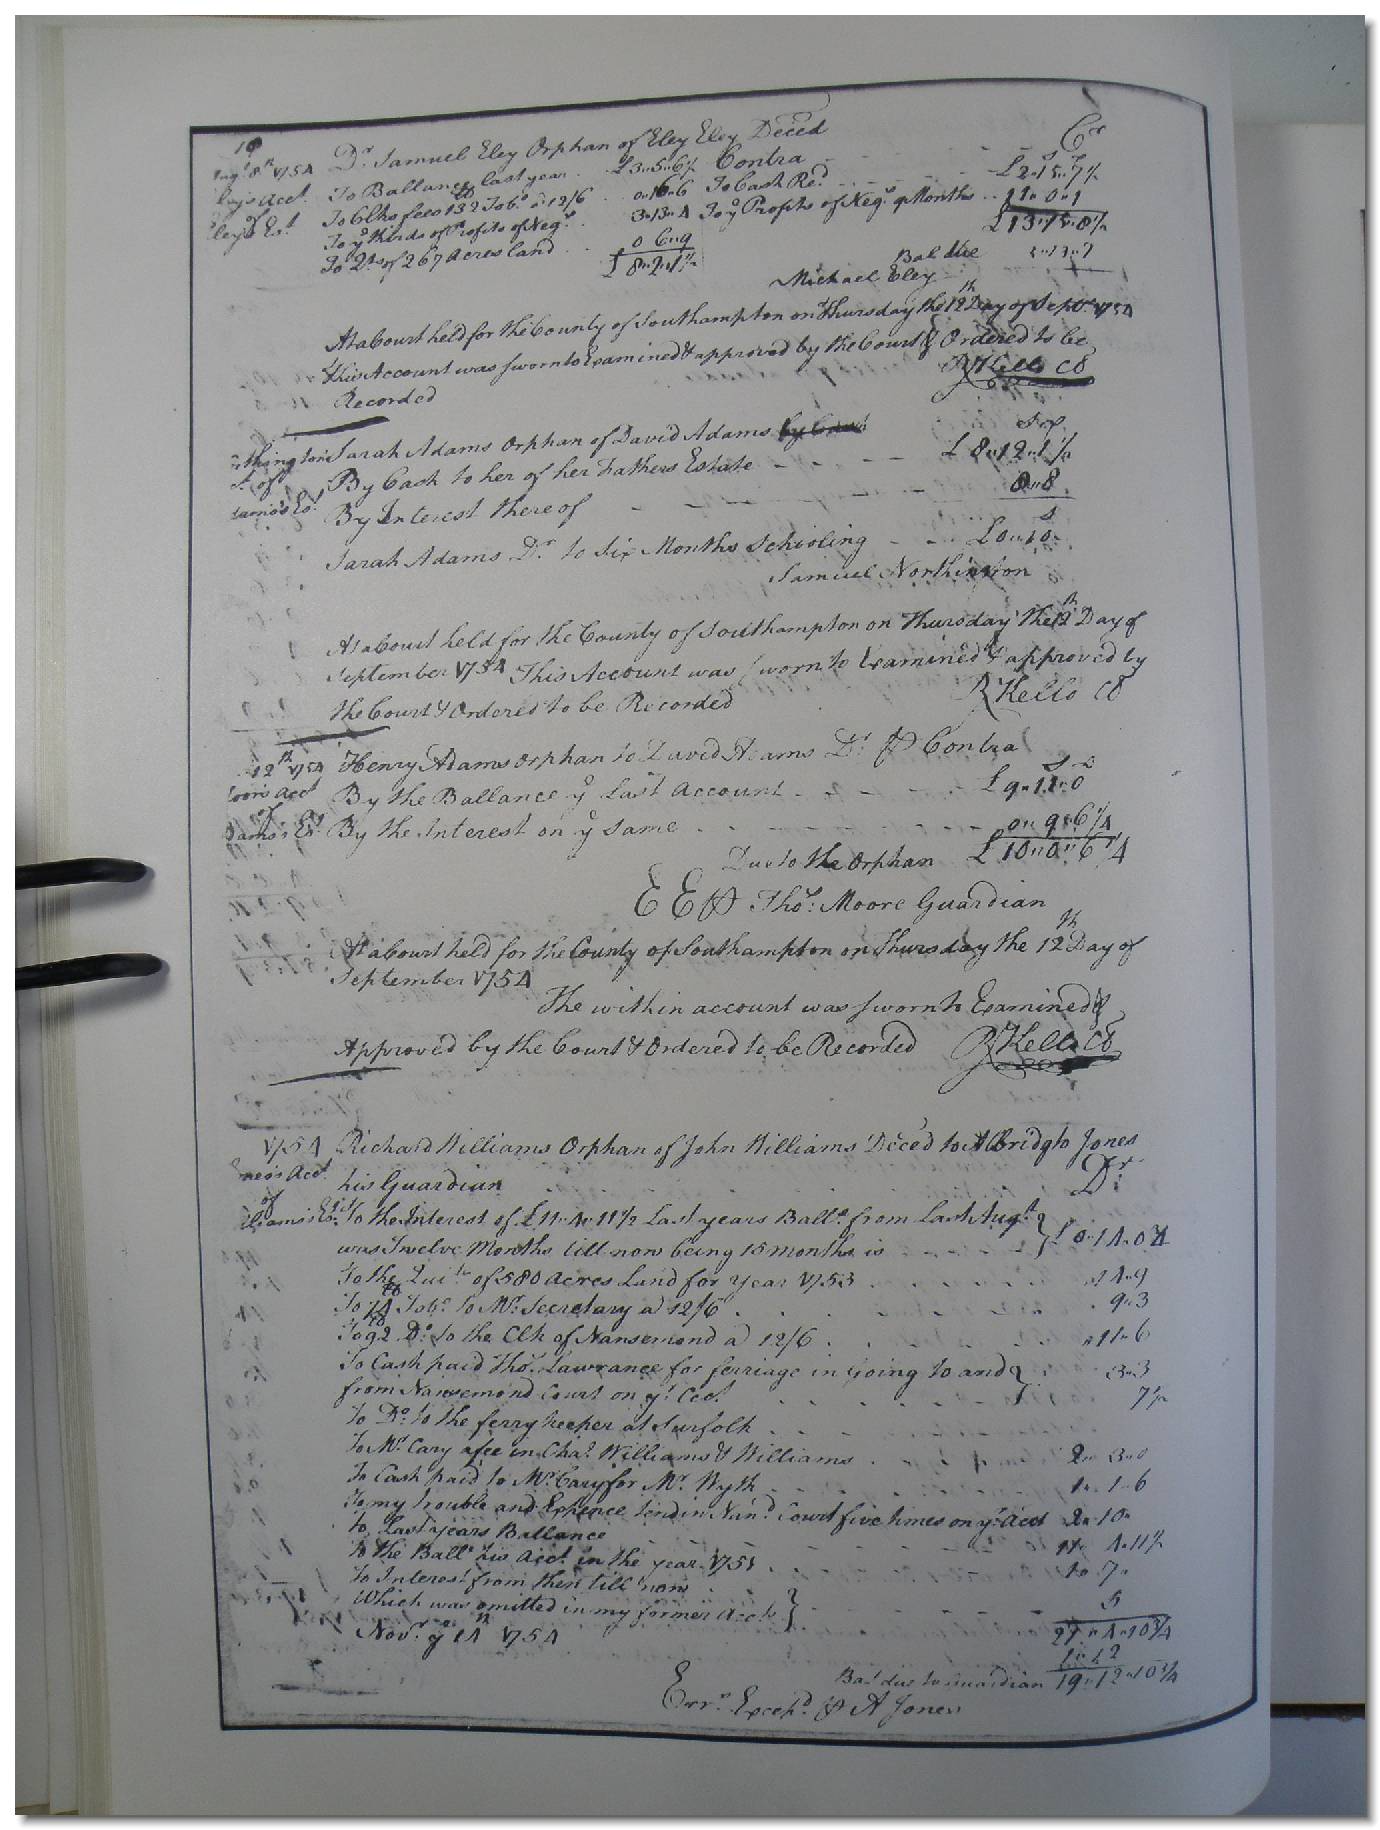 Dr. Samuel Eley Orphan of Eley Eley Deced Cr
Augt 8th 1754
To Ballance last year £3"5"6½ Contra
Eley's Acct To Clks fees 132 Tobo. a 12/6 0"16"6 To Cash Red £2"15"7½
of Eley's Est. To ye thirds of Profits of Negrs. 3"13"4 To ye Profits of Negs 9 Months 11"0"1
To 2ts of 267 Acres land 0"6"9 £13"15"8½
£8"2"1½ Bal due
Michael Eley
At a Court held for the County of Southampton on Thursday the 12th Day of Septr. 1754
This Account was sworn to Examined & approved by the Court & Ordered to be
Recorded R Kello CC
Sarah Adams Orphan of David Adams
of By Cash to her of her Fathers Estate £8"12"1½
Adams's Est. By Interest there of 8"8
Sarah Adams Dr to Six Months Schioling £0"10"
Samuel Northington
At a Court held for the County of Southampton on Thursday the 12th Day of
September 1754 This Account was sworn to Examined & approved by
the Court & Ordered to be Recorded R Kello CC
12th 1754 Henry Adams Orphan to David Adams Dr. P Contra
Moor's Acct By the Ballance ye Last Account £9"11"0
of Adams's Est. By the Interest on ye Same 0"9"6¼
Due to the Orphan £10"0"6¼
E E P Thos: Moore Guardian
At a Court held for the County of Southampton on Thursday the 12th Day of
September 1754
The within account was sworn to Examined &
Approved by the Court & Ordered to be Recorded R Kello CC
1754 Richard Williams Orphan of John Williams Deced to Albridgto Jones
Jones's Acct. his Guardian Dr.
of
Williams's Est. To the Interest of £11"4"11½ Last years Balla. from Last Augst
was Twelve Months till now being 15 months is £0"14"0¾
To the Quits of 580 Acres Land for year 1753 "14"9
To 74 Tobo. to Mr. Secretary a 12/6 9"3
To 92 Do. to the Clk of Nansemond a 12/6 "11"6
To Cash paid Thos. Lawrance for ferriage in going to and
from Nansemond Court on ys. Acct. 3"3
To Do. to the ferry keeper at Suffolk 7½
To Mr Cary a fee in Cha. Williams & Williams 2"3"0
To Cash paid to Mr. Cary for Mr. Wyth 1"1"6
To my trouble and Expence tend in Nand. Court five times on ys. Acct 2"10"
To Last years Ballance 11"4"11½
To the Balla. his Acct. in the year 1751 1"7"
To Interest from then till now
Which was omitted in my former Accts 5
Novr. ye 14th 1754 21"4"10¾
1"12
Bal due to Guardian 19"12"10¾
Errs. Excepd. P A Jones